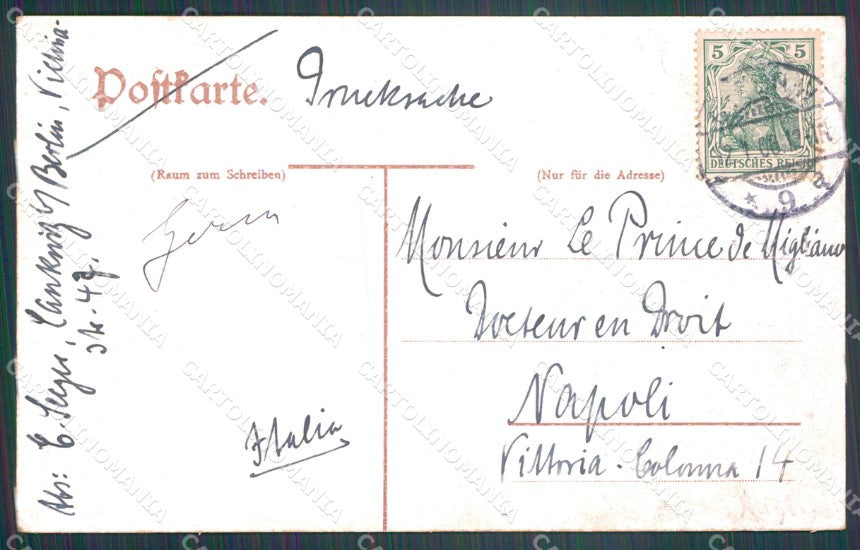 Postkarte. Drucksache
(Raum zum Schreiben)
(Nur für die Adresse)
5 5
DEUTSCHES REICH
* 9
Monsieur Le Prince de Migliano
Docteur en Droit
Napoli
Vittoria-Colonna 14
Italia
Abs: C. Seeger, Lankwitz b/ Berlin, Viktoria-
str. 47.
CARTOLINOMANIA